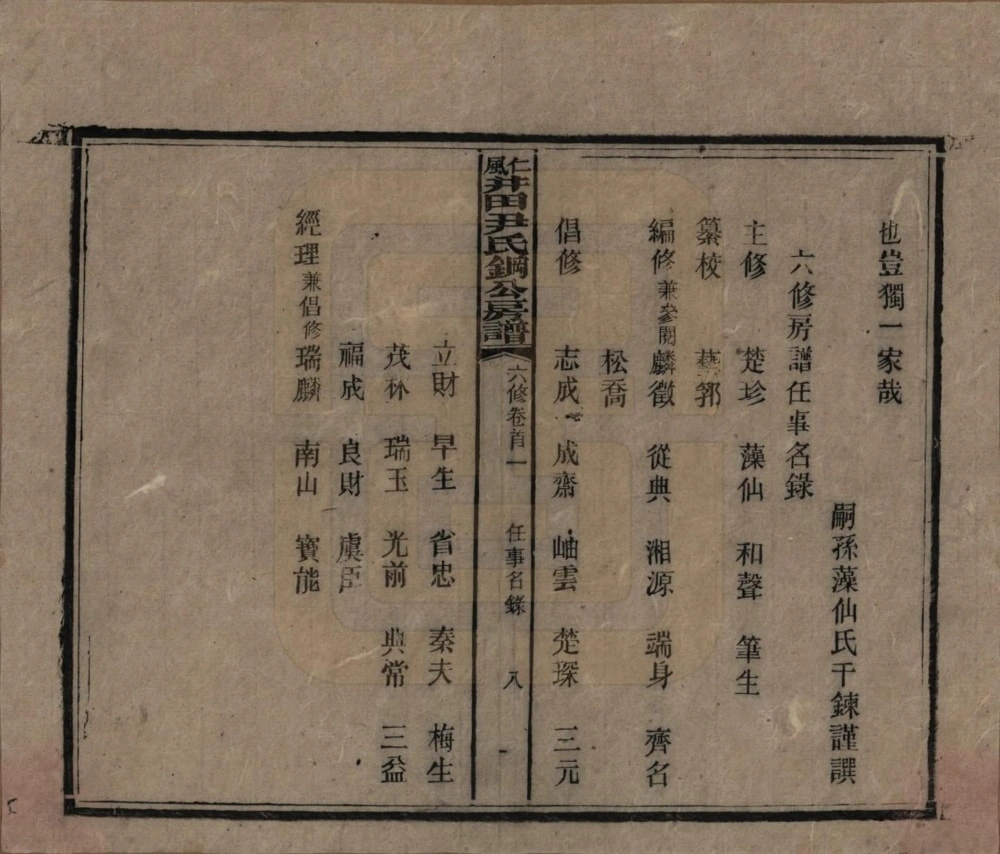 也豈獨一家哉
嗣孫藻仙氏干鍊謹譔
六修房譜任事名錄
主修 楚珍 藻仙 和聲 筆生
纂校 藝郛
編修兼參閱 麟徵 從典 湘源 端身 齊名
松喬
倡修 志成 成齋 岫雲 楚琛 三元
仁風井田尹氏鋼公房譜 六修卷首一 任事名錄 八
立財 早生 省忠 秦夫 梅生
茂林 瑞玉 光前 典常 三益
福成 良財 虞臣
經理兼倡修 瑞麟 南山 寶能